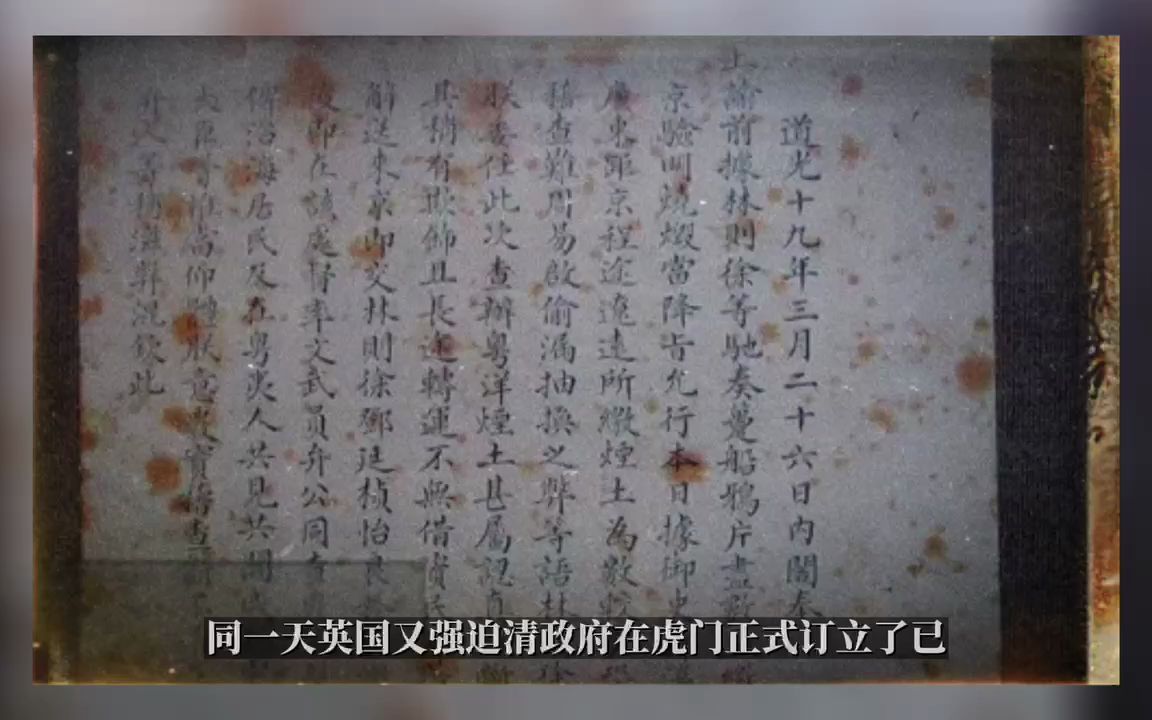 道光十九年三月二十六日內閣奉
上諭前據林則徐等馳奏躉船鴉片盡數
京驗明燒燬當降旨允行本日據御史
廣東距京程途遼遠所繳煙土為數較
稽查難周易啟偷漏抽換之弊等語林
朕委任此次查辦粵洋煙土甚屬認真
其稍有欺飾且長途轉運不無借資民
解送來京即交林則徐鄧廷楨怡良
即在該處督率文武員弁公同查
俾沿海居民及在粵夷人共見共聞咸
大臣等惟當仰體朕意核實稽查
致滋弊混欽此
同一天英国又强迫清政府在虎门正式订立了已